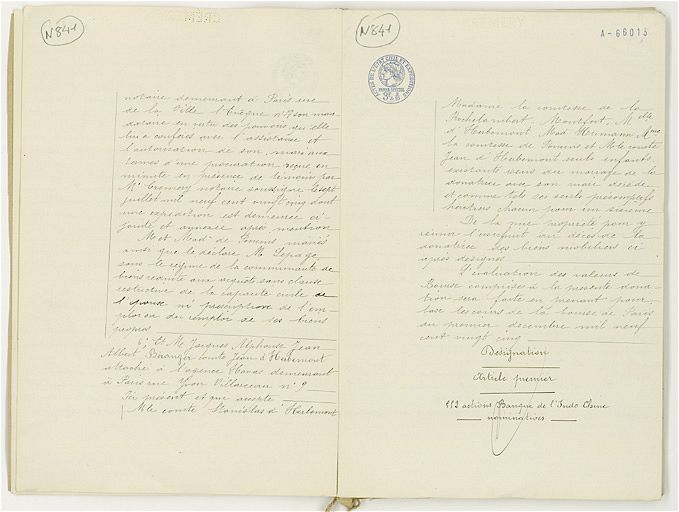 N 841
notaire demeurant à Paris rue
de la Ville l'Evêque n° 8 son man-
dataire en vertu des pouvoirs qu'elle
lui a conférés avec l'assistance et
l'autorisation de son mari aux
termes d'une procuration reçue en
minute en présence de témoins par
Me notaire soussigné le sept
juillet mil neuf cent vingt cinq dont
une expédition est demeurée ci-
jointe et annexée après mention
M et Mad de mariés
ainsi que le déclare M. Lepage
sous le régime de la communauté de
biens réduite aux acquêts sans clause
restrictive de la capacité civile de
l'épouse ni prescription de l'em-
ploi ou du remploi de ses biens
propres
6; Et M. Jacques Alphonse Jean
Albert Béranger comte Jean d'Herbemont
attaché à l'agence Havas demeurant
à Paris rue Yvon Villarceau n° 9
Ici présent et qui accepte
M le comte Stanislas d'Herbemont
N 841
A-66013
Madame la comtesse de la
Rochelambert, Montfort, Melle
d'Herbemont Mad Hermann Mme
la comtesse de et M le comte
Jean d'Herbemont seuls enfants
existants issus du mariage de la
donatrice avec son mari décédé
et comme tels ses seuls présomptifs
héritiers chacun pour un sixième
De la nue propriété pour y
réunir l'usufruit au décès de la
donatrice des biens mobiliers ci
après désignés
L'évaluation des valeurs de
Bourse comprises à la présente dona-
tion sera faite en prenant pour
base les cours de la bourse de Paris
du premier décembre mil neuf
cent vingt cinq
Désignation
Article premier
112 actions Banque de l'Indo Chine
nominatives